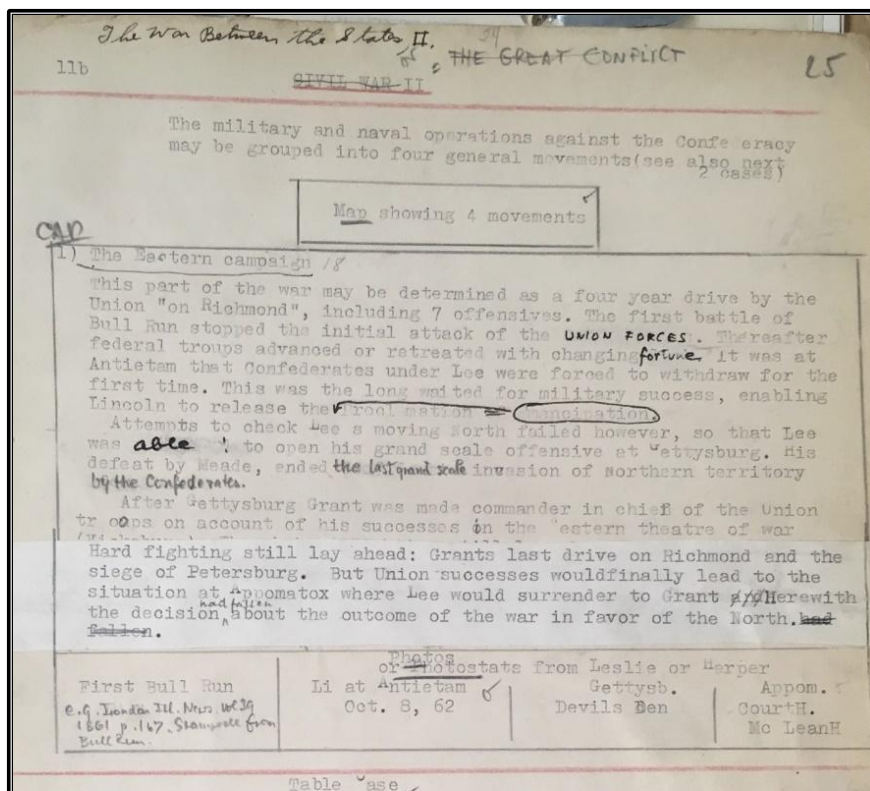 The War Between the States II.
24
= THE GREAT CONFLICT
25
11b
CIVIL WAR II
The military and naval operations against the Confe eracy
may be grouped into four general movements(see also next
2 cases)
Map showing 4 movements
CAP
1) The Eastern campaign 18
This part of the war may be determined as a four year drive by the
Union "on Richmond", including 7 offensives. The first battle of
Bull Run stopped the initial attack of the UNION FORCES. Thereafter
federal troups advanced or retreated with changing fortune. it was at
Antietam that Confederates under Lee were forced to withdraw for the
first time. This was the long waited for military success, enabling
Lincoln to release the Procl mation Emancipation.
Attempts to check Lee s moving North failed however, so that Lee
was able to open his grand scale offensive at Gettysburg. His
defeat by Meade, ended the last grand scale invasion of Northern territory
by the Confederates.
After Gettysburg Grant was made commander in chief of the Union
tr oops on account of his successes in the estern theatre of war
Hard fighting still lay ahead: Grants last drive on Richmond and the
siege of Petersburg. But Union successes wouldfinally lead to the
situation at Appomatox where Lee would surrender to Grant Herewith
the decision had fallen about the outcome of the war in favor of the North. had
fallen.
Photos
or Photostats from Leslie or Harper
First Bull Run
e.g. London Ill. News vol 39
1861 p. 167. Stampede from
Bull Run.
Li at Antietam
Oct. 8, 62
Gettysb.
Devils Den
Appom.
CourtH.
Mc LeanH
Table Case